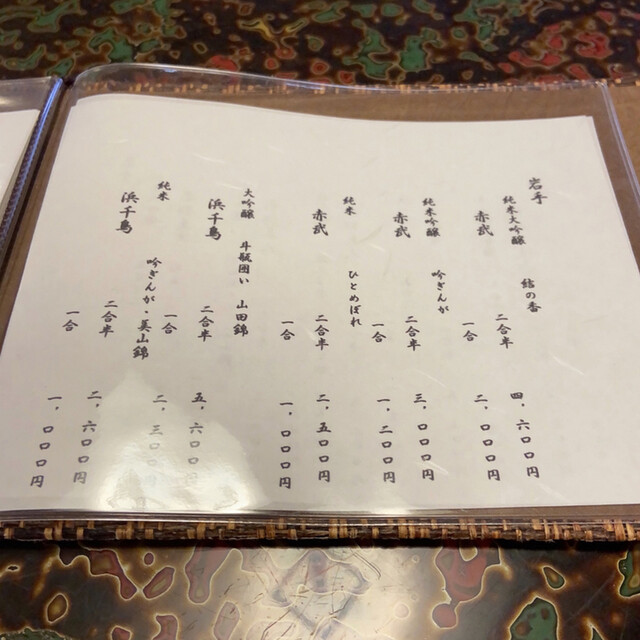 岩手
純米大吟醸 結の香
赤武 二合半 四、六〇〇円
一合 二、〇〇〇円
純米吟醸 吟ぎんが
赤武 二合半 三、〇〇〇円
一合 一、二〇〇円
純米 ひとめぼれ
赤武 二合半 二、五〇〇円
一合 一、〇〇〇円
大吟醸 斗瓶囲い 山田錦
浜千鳥 二合半 五、六〇〇円
一合 二、三〇〇円
純米 吟ぎんが・美山錦
浜千鳥 二合半 二、六〇〇円
一合 一、〇〇〇円